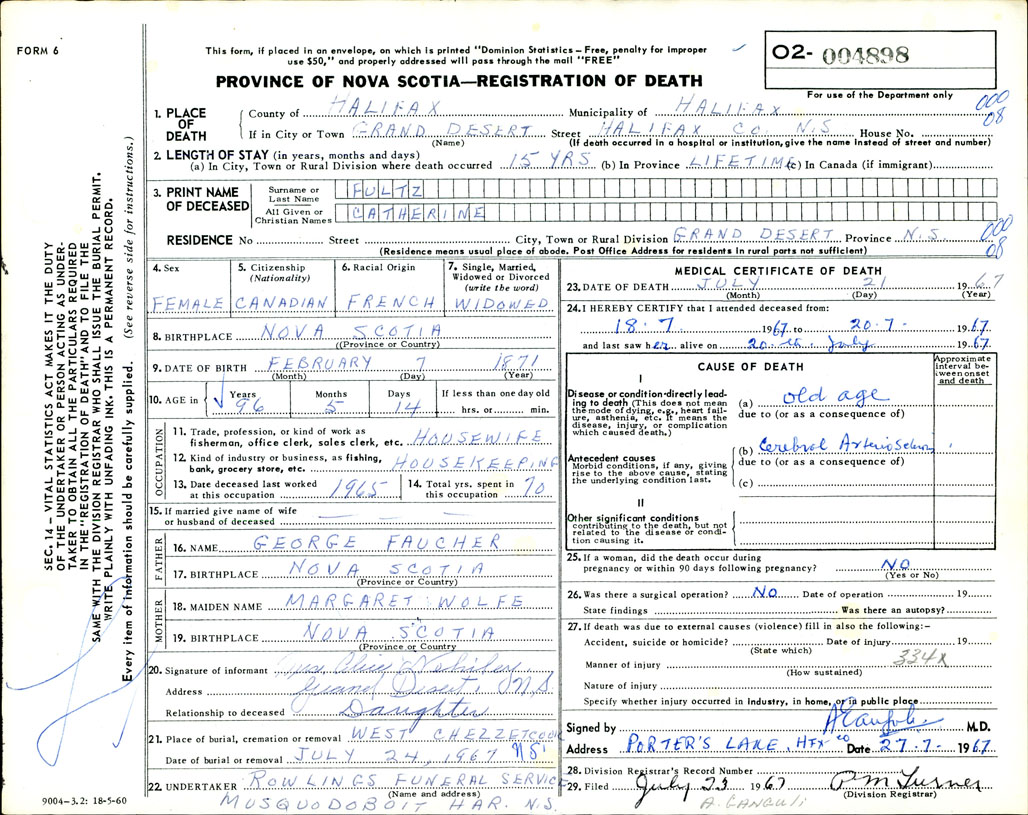 FORM 6
This form, if placed in an envelope, on which is printed "Dominion Statistics – Free, penalty for improper
use $50," and properly addressed will pass through the mail "FREE"
PROVINCE OF NOVA SCOTIA—REGISTRATION OF DEATH
02- 004898
For use of the Department only
000
08
1. PLACE OF DEATH
County of HALIFAX Municipality of HALIFAX
If in City or Town GRAND DESERT Street HALIFAX CO. N.S House No.
(Name) (If death occurred in a hospital or institution, give the name instead of street and number)
2. LENGTH OF STAY (in years, months and days)
(a) In City, Town or Rural Division where death occurred 15 YRS (b) In Province LIFETIME (c) In Canada (if immigrant)
3. PRINT NAME OF DECEASED
Surname or Last Name FULTZ
All Given or Christian Names CATHERINE
RESIDENCE No Street City, Town or Rural Division GRAND DESERT Province N.S.
000
08
(Residence means usual place of abode. Post Office Address for residents in rural parts not sufficient)
4. Sex
FEMALE
5. Citizenship (Nationality)
CANADIAN
6. Racial Origin
FRENCH
7. Single, Married, Widowed or Divorced (write the word)
WIDOWED
8. BIRTHPLACE NOVA SCOTIA
((Province or Country)
9. DATE OF BIRTH FEBRUARY 7 1871
(Month) (Day) (Year)
10. AGE in
Years Months Days If less than one day old
96 5 14 hrs. or min.
OCCUPATION
11. Trade, profession, or kind of work as
fisherman, office clerk, sales clerk, etc. HOUSEWIFE
12. Kind of industry or business, as fishing,
bank, grocery store, etc. HOUSEKEEPING
13. Date deceased last worked
at this occupation 1965
14. Total yrs. spent in
this occupation 70
15. If married give name of wife
or husband of deceased — — —
FATHER
16. NAME GEORGE FAUCHER
17. BIRTHPLACE NOVA SCOTIA
(Province or Country)
MOTHER
18. MAIDEN NAME MARGARET WOLFE
19. BIRTHPLACE NOVA SCOTIA
(Province or Country
20. Signature of informant
Address Grand Desert, N.S.
Relationship to deceased Daughter
21. Place of burial, cremation or removal WEST CHEZZETCOOK
Date of burial or removal JULY 24, 1967 NS
22. UNDERTAKER ROWLINGS FUNERAL SERVICE
(Name and address)
MUSQUODOBOIT HAR. N.S.
9004-3.2: 18-5-60
MEDICAL CERTIFICATE OF DEATH
23. DATE OF DEATH JULY 21 1967
(Month) (Day) (Year)
24. I HEREBY CERTIFY that I attended deceased from:
18.7 1967 to 20.7- 1967
and last saw her alive on 20th July 1967
CAUSE OF DEATH
Approximate interval between onset and death
I
Disease or condition directly leading to death (This does not mean
the mode of dying, e.g., heart failure, asthenia, etc. It means the
disease, injury, or complication
which caused death.)
(a) old age
due to (or as a consequence of)
Antecedent causes
Morbid conditions, if any, giving
rise to the above cause, stating
the underlying condition last.
(b) Cerebral
due to (or as a consequence of)
(c)
II
Other significant conditions
contributing to the death, but not
related to the disease or condition causing it.
25. If a woman, did the death occur during
pregnancy or within 90 days following pregnancy? NO
(Yes or No)
26. Was there a surgical operation? NO Date of operation 19
State findings Was there an autopsy?
27. If death was due to external causes (violence) fill in also the following:-
Accident, suicide or homicide? Date of injury 19
(State which)
334X
Manner of injury
(How sustained)
Nature of injury
Specify whether injury occurred in industry, in home, or in public place
Signed by M.D.
Address PORTER'S LAKE, HFX CO Date 27.7- 1967
28. Division Registrar's Record Number
29. Filed July 23 1967 P M Turner
(Division Registrar)
A. GANGULI
SEC. 14 – VITAL STATISTICS ACT MAKES IT THE DUTY
OF THE UNDERTAKER OR PERSON ACTING AS UNDER-
TAKER TO OBTAIN ALL THE PARTICULARS REQUIRED
IN THE "REGISTRATION OF DEATH" AND TO FILE THE
SAME WITH THE DIVISION REGISTRAR WHO SHALL ISSUE THE BURIAL PERMIT.
WRITE PLAINLY WITH UNFADING INK. THIS IS A PERMANENT RECORD.
Every item of Information should be carefully supplied. (See reverse side for instructions.)